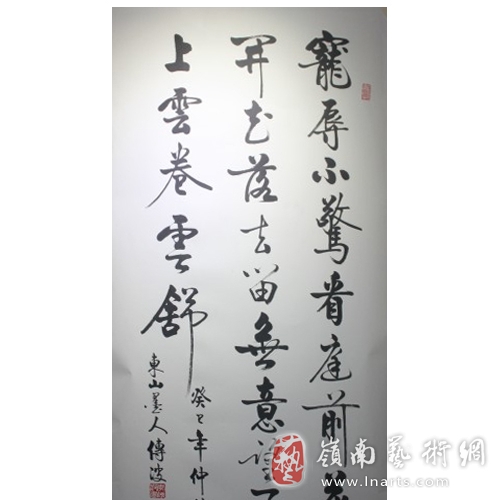 寵辱不驚看庭前
開花落去留無意望
上雲卷雲舒
癸巳年仲
東山墨人傳波
藝 嶺南藝術網
www.lnarts.com